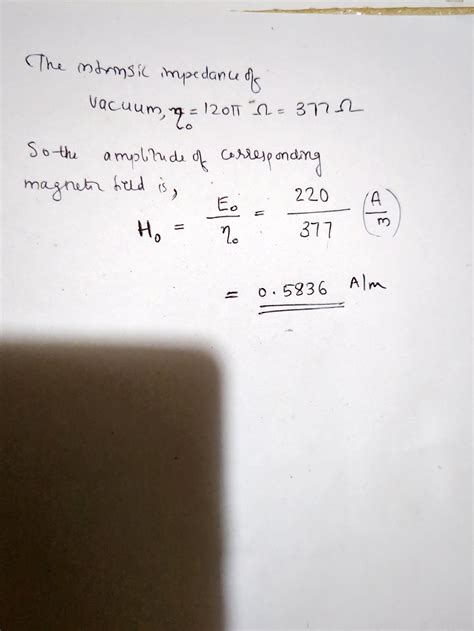 The intrinsic impedance of
vacuum, η₀ = 120π Ω = 377 Ω
So the amplitude of corresponding
magnetic field is,
H₀ = E₀/η₀ = 220/377 (A/m)
= 0.5836 A/m